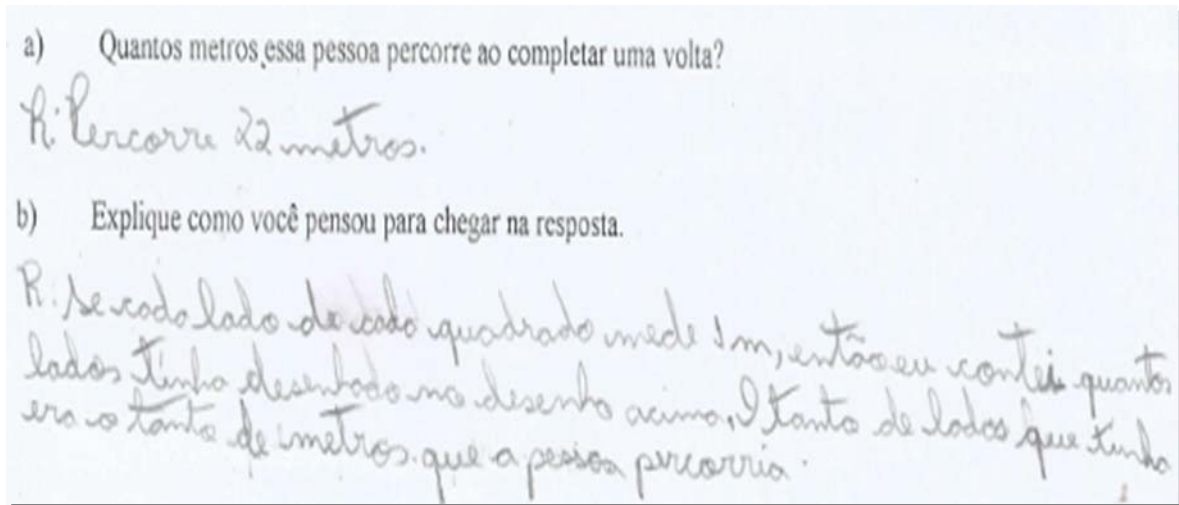 a) Quantos metros essa pessoa percorre ao completar uma volta?
R: Percorre 22 metros.
b) Explique como você pensou para chegar na resposta.
R. Se cada lado de cada quadrado mede 1m, então eu contei quantos
lados tinha desenhado no desenho acima. O tanto de lados que tinha
era o tanto de metros que a pessoa percorria.